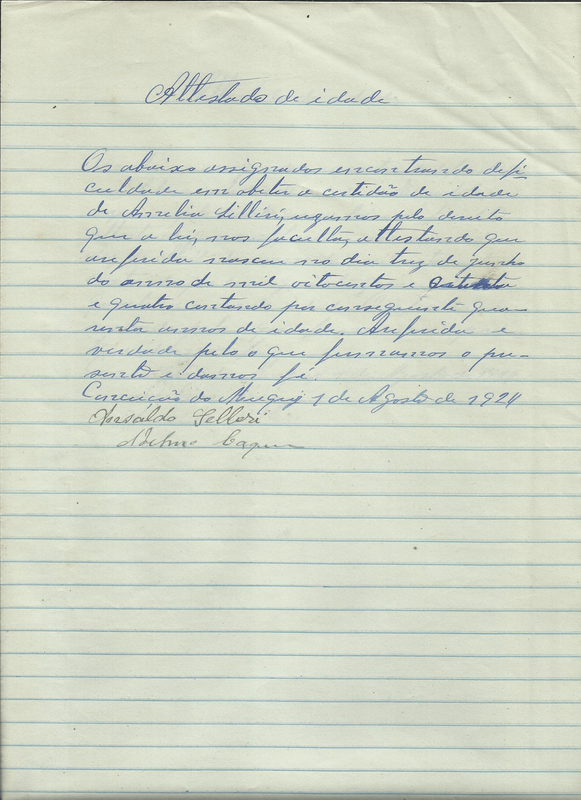 Attestado de idade
Os abaixo assignados encontrando defi
culdade em obter a certidão de idade
de Amelia Selleri, uzamos pelo direito
que a lei, nos faculta, attestando que
a referida nasceu no dia trez de junho
do anno de mil oitocentos e oitenta
e quatro contando por conseguinte qua-
renta annos de idade. A referida e
verdade pelo o que firmamos o pre-
sente e damos fé.
Conceição do Muquy 1 de Agosto de 1924
Selleri